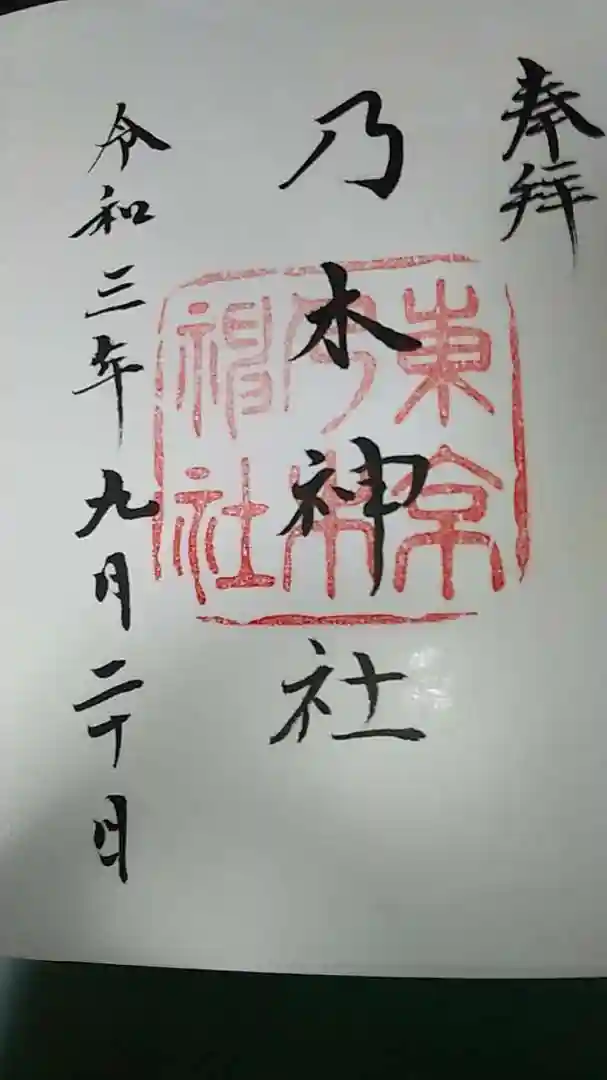 奉拝
乃木神社
東京
乃木
神社
令和三年九月二十日